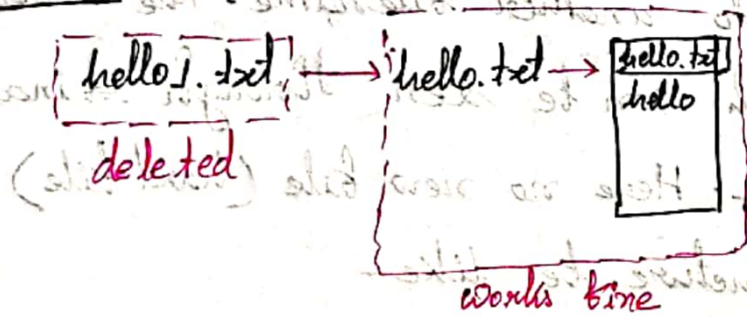 hello1.txt → hello.txt → hello.txt
hello
deleted
works fine